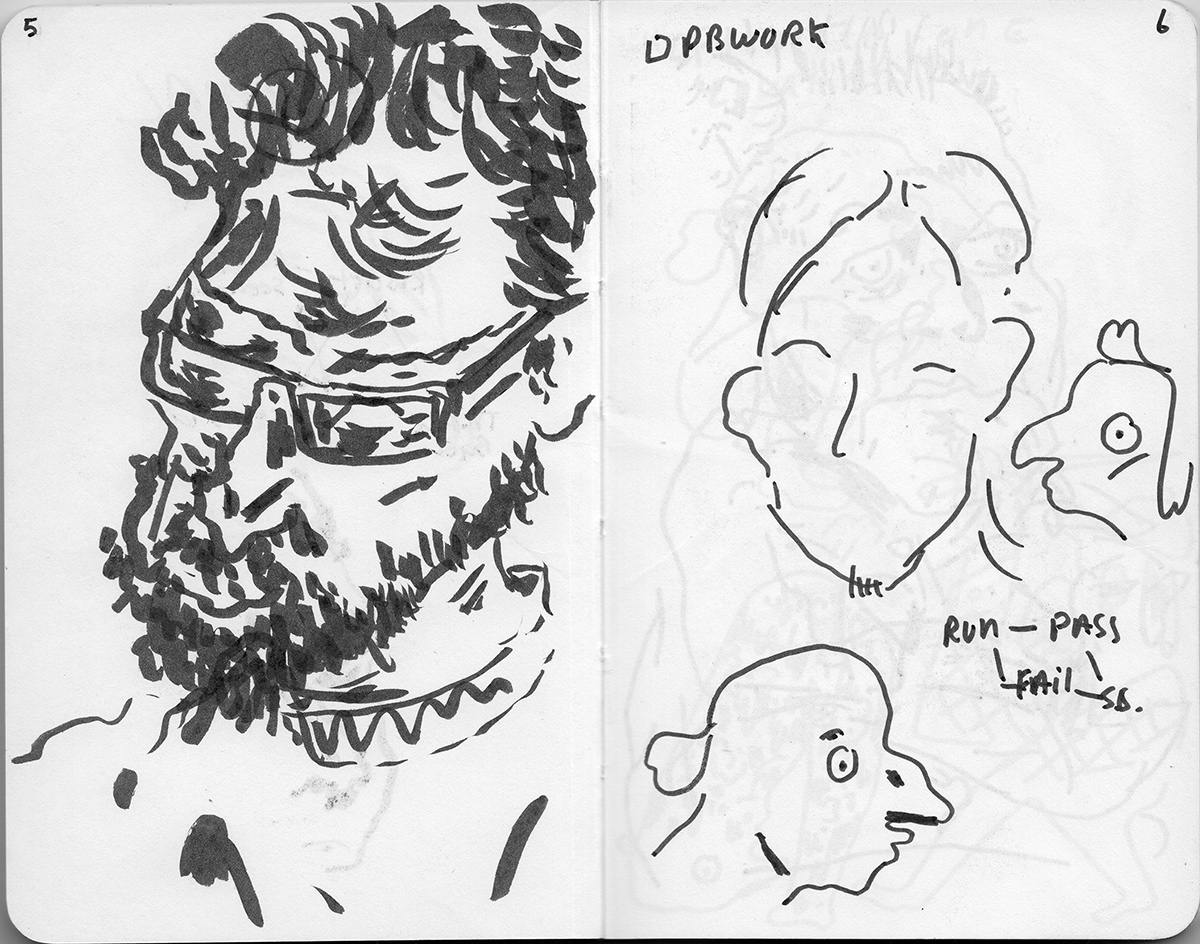 5
6
DPBWORK
RUN — PASS
FAIL SB.